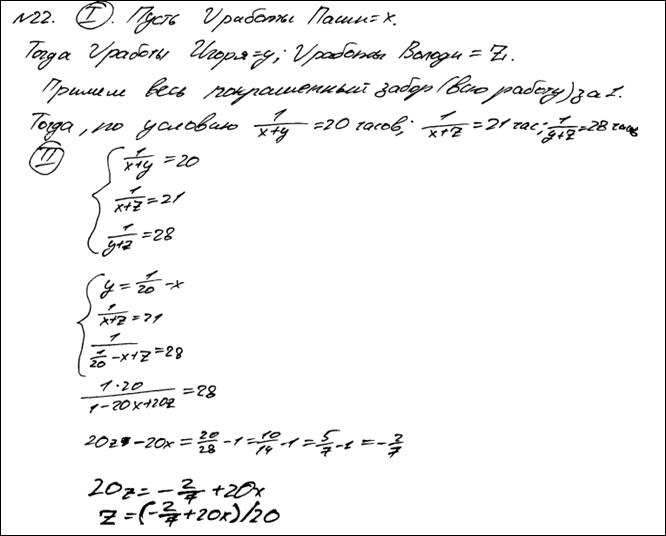 N22. I. Пусть V работы Паши = x.
Тогда V работы Игоря = y; V работы Володи = Z.
Примем весь покрашенный забор (всю работу) за 1.
Тогда, по условию 1/(x+y) = 20 часов; 1/(x+z) = 21 час; 1/(y+z) = 28 часов
II
1/(x+y) = 20
1/(x+z) = 21
1/(y+z) = 28
y = 1/20 - x
1/(x+z) = 21
1/(1/20 - x + z) = 28
1·20/(1 - 20x + 20z) = 28
20z - 20x = 20/28 - 1 = 10/14 - 1 = 5/7 - 1 = -2/7
20z = -2/7 + 20x
z = (-2/7 + 20x)/20